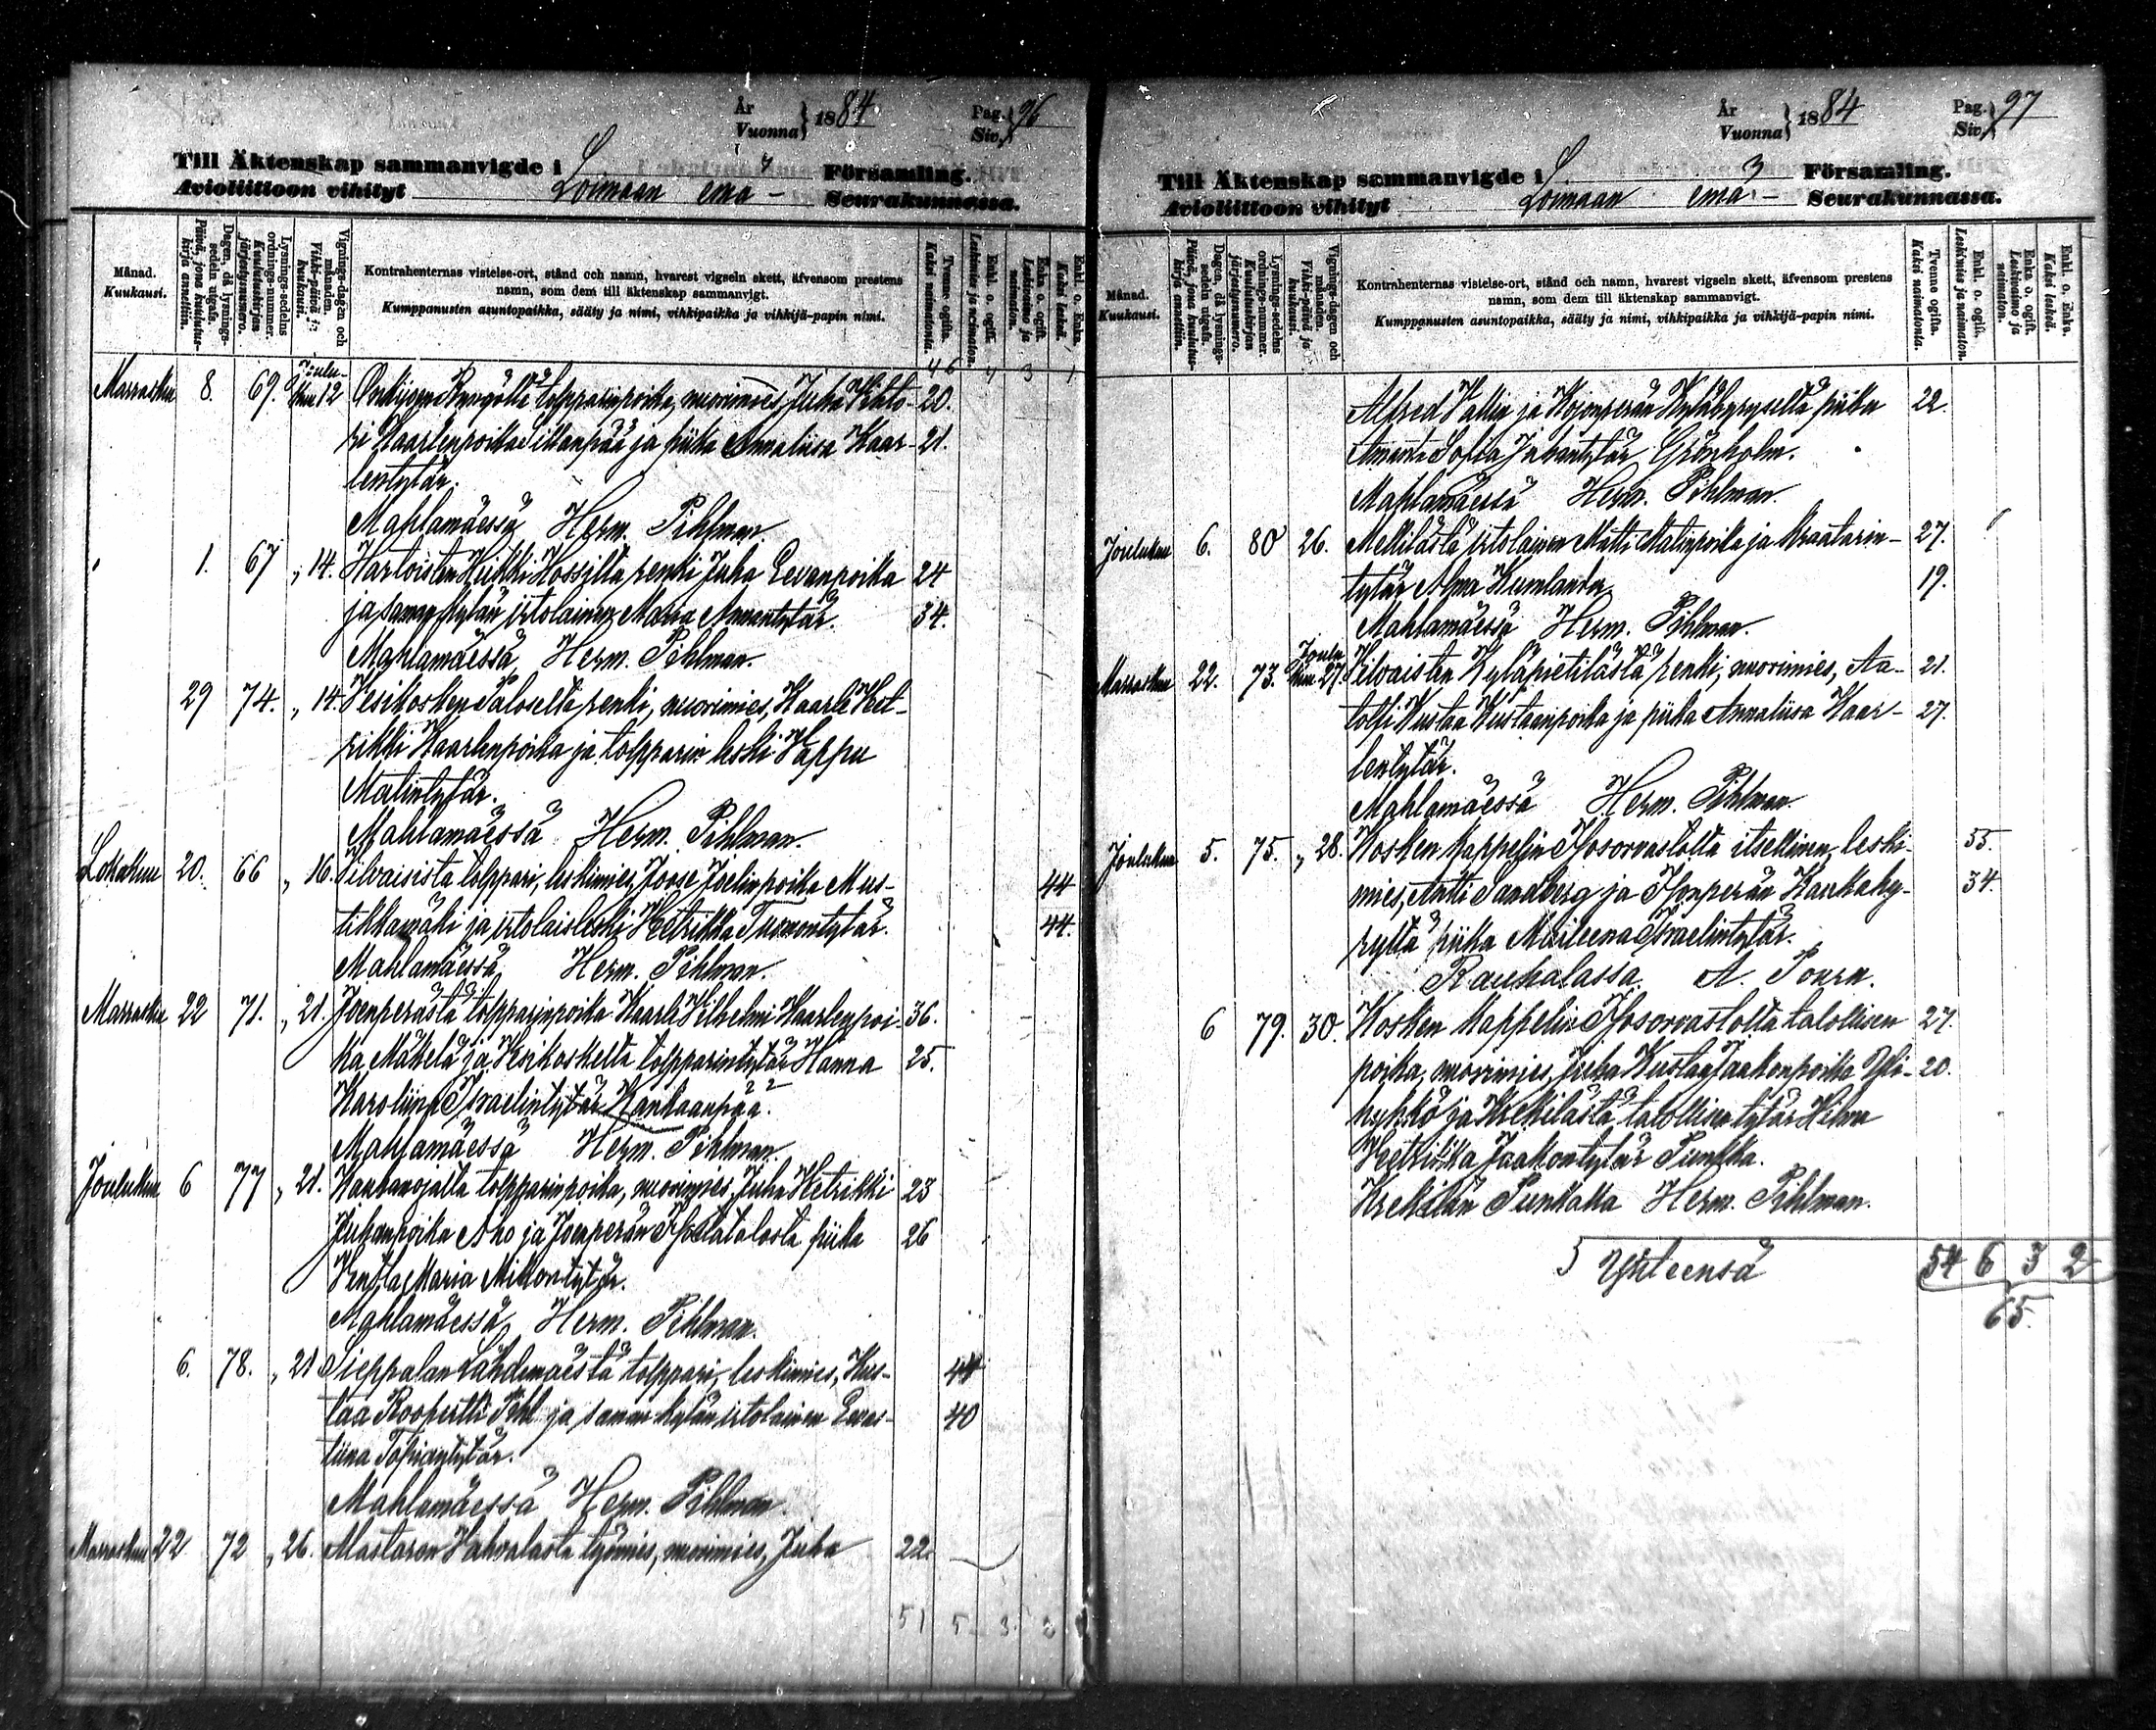 År
Vuonna } 1884.
Pag.
Siv. } 96
Till Äktenskap sammanvigde i
Avioliittoon vihityt
Loimaan emä-
Församling.
Seurakunnassa.
Månad.
Kuukausi.
Dagen, då lysnings-sedeln utgafs.
Päivä, jona kuulutus-kirja annettiin.
Lysnings-sedelns ordnings-nummer.
Kuulutuskirjan järjestysnumero.
Vignings-dagen och månaden.
Vihki-päivä ja kuukausi.
Kontrahenternas vistelse-ort, stånd och namn, hvarest vigseln skett, äfvensom prestens
namn, som dem till äktenskap sammanvigt.
Kumppanusten asuntopaikka, sääty ja nimi, vihkipaikka ja vihkijä-papin nimi.
Tvenne ogifta.
Kaksi naimatonta.
Enkl. o. ogift.
Leskimies ja naimaton.
Enka o. ogift.
Leskivaimo ja naimaton.
Enkl. o. Enka.
Kaksi leskeä.
46 4 3 1
Marraskuu 8. 69. Joulukuu 12 tolpparinpoika, nuorimies, Juha Vihto- 20.
ri Kaarlenpoika ja piika Annaliisa Kaar- 21.
lentytär.
Mahlamäessä Herm. Pihlman.
1. 67 „ 14. renki Juha Eevanpoika 24
ja saman kylän irtolainen Maria Annantytär. 34.
Mahlamäessä Herm. Pihlman.
29 74. „ 14. Vesikosken Saloselta renki, nuorimies, Kaarle Het-
rikki Kaarlenpoika ja tolpparin leski Vappu
Matintytär.
Mahlamäessä Herm. Pihlman.
Lokakuu 20. 66 „ 16. tolppari, leskimies, Joose Joelinpoika Mus- 44
tikkamäki ja irtolaisleski Hetrikka Tuomontytär. 44.
Mahlamäessä Herm. Pihlman.
Marraskuu 22 71. „ 21. Joenperästä tolpparinpoika Kaarle Vilhelmi Kaarlenpoi- 36.
ka Mäkelä ja Vesikoskelta tolpparintytär Hanna 25.
Karoliina Israelintytär Kankaanpää.
Mahlamäessä Herm. Pihlman.
Joulukuu 6 77 „ 21. Kauhanojalta tolpparinpoika, nuorimies, Juha Hetrikki 23
Juhanpoika Aho ja Joenperän piika 26
Maria Mikontytär.
Mahlamäessä Herm. Pihlman.
6. 78. „ 21 Sieppalan Lähdemäestä tolppari, leskimies, Kus- 44
taa Roopertti Pihl ja saman kylän irtolainen Eevas- 40
tiina Topiantytär.
Mahlamäessä Herm. Pihlman.
Marraskuu 22 72 „ 26. työmies, nuorimies, Juha 22.
51 5 3
År
Vuonna } 1884
Pag.
Siv. } 97
Till Äktenskap sammanvigde i
Avioliittoon vihityt
Loimaan emä-
Församling.
Seurakunnassa.
Månad.
Kuukausi.
Dagen, då lysnings-sedeln utgafs.
Päivä, jona kuulutus-kirja annettiin.
Lysnings-sedelns ordnings-nummer.
Kuulutuskirjan järjestysnumero.
Vignings-dagen och månaden.
Vihki-päivä ja kuukausi.
Kontrahenternas vistelse-ort, stånd och namn, hvarest vigseln skett, äfvensom prestens
namn, som dem till äktenskap sammanvigt.
Kumppanusten asuntopaikka, sääty ja nimi, vihkipaikka ja vihkijä-papin nimi.
Tvenne ogifta.
Kaksi naimatonta.
Enkl. o. ogift.
Leskimies ja naimaton.
Enka o. ogift.
Leskivaimo ja naimaton.
Enkl. o. Enka.
Kaksi leskeä.
Alfred Vallin ja Kojonperän piika 22.
Amanda Sofia Grönholm.
Mahlamäessä Herm. Pihlman.
Joulukuu 6. 80 26. Mellilästä irtolainen Matti Matinpoika ja kraatarin- 27.
tytär Alma Kumlander 19.
Mahlamäessä Herm. Pihlman.
Marraskuu 22. 73. Joulukuu 27. Kyläpietilästä renki, nuorimies, Aa- 21.
totti Kustaa Kustaanpoika ja piika Annaliisa Kaar- 27.
lentytär.
Mahlamäessä Herm. Pihlman.
Joulukuu 5. 75. „ 28. Kosken kappelin Isosorvastolta itsellinen, leski- 55.
mies, Antti Sandberg ja 34.
piika Israelintytär.
Rauhalassa. A.
6 79. 30. Kosken kappelin Isosorvastolta talollisen 27.
poika, nuorimies, Juha Kustaa Jaakonpoika Yli- 20.
hyhkö ja Krekilästä talollisen tytär Hilma
Hetriikka Jaakontytär Punkka.
Krekilän Punkalla Herm. Pihlman.
Yhteensä 54 6 3 2
65.